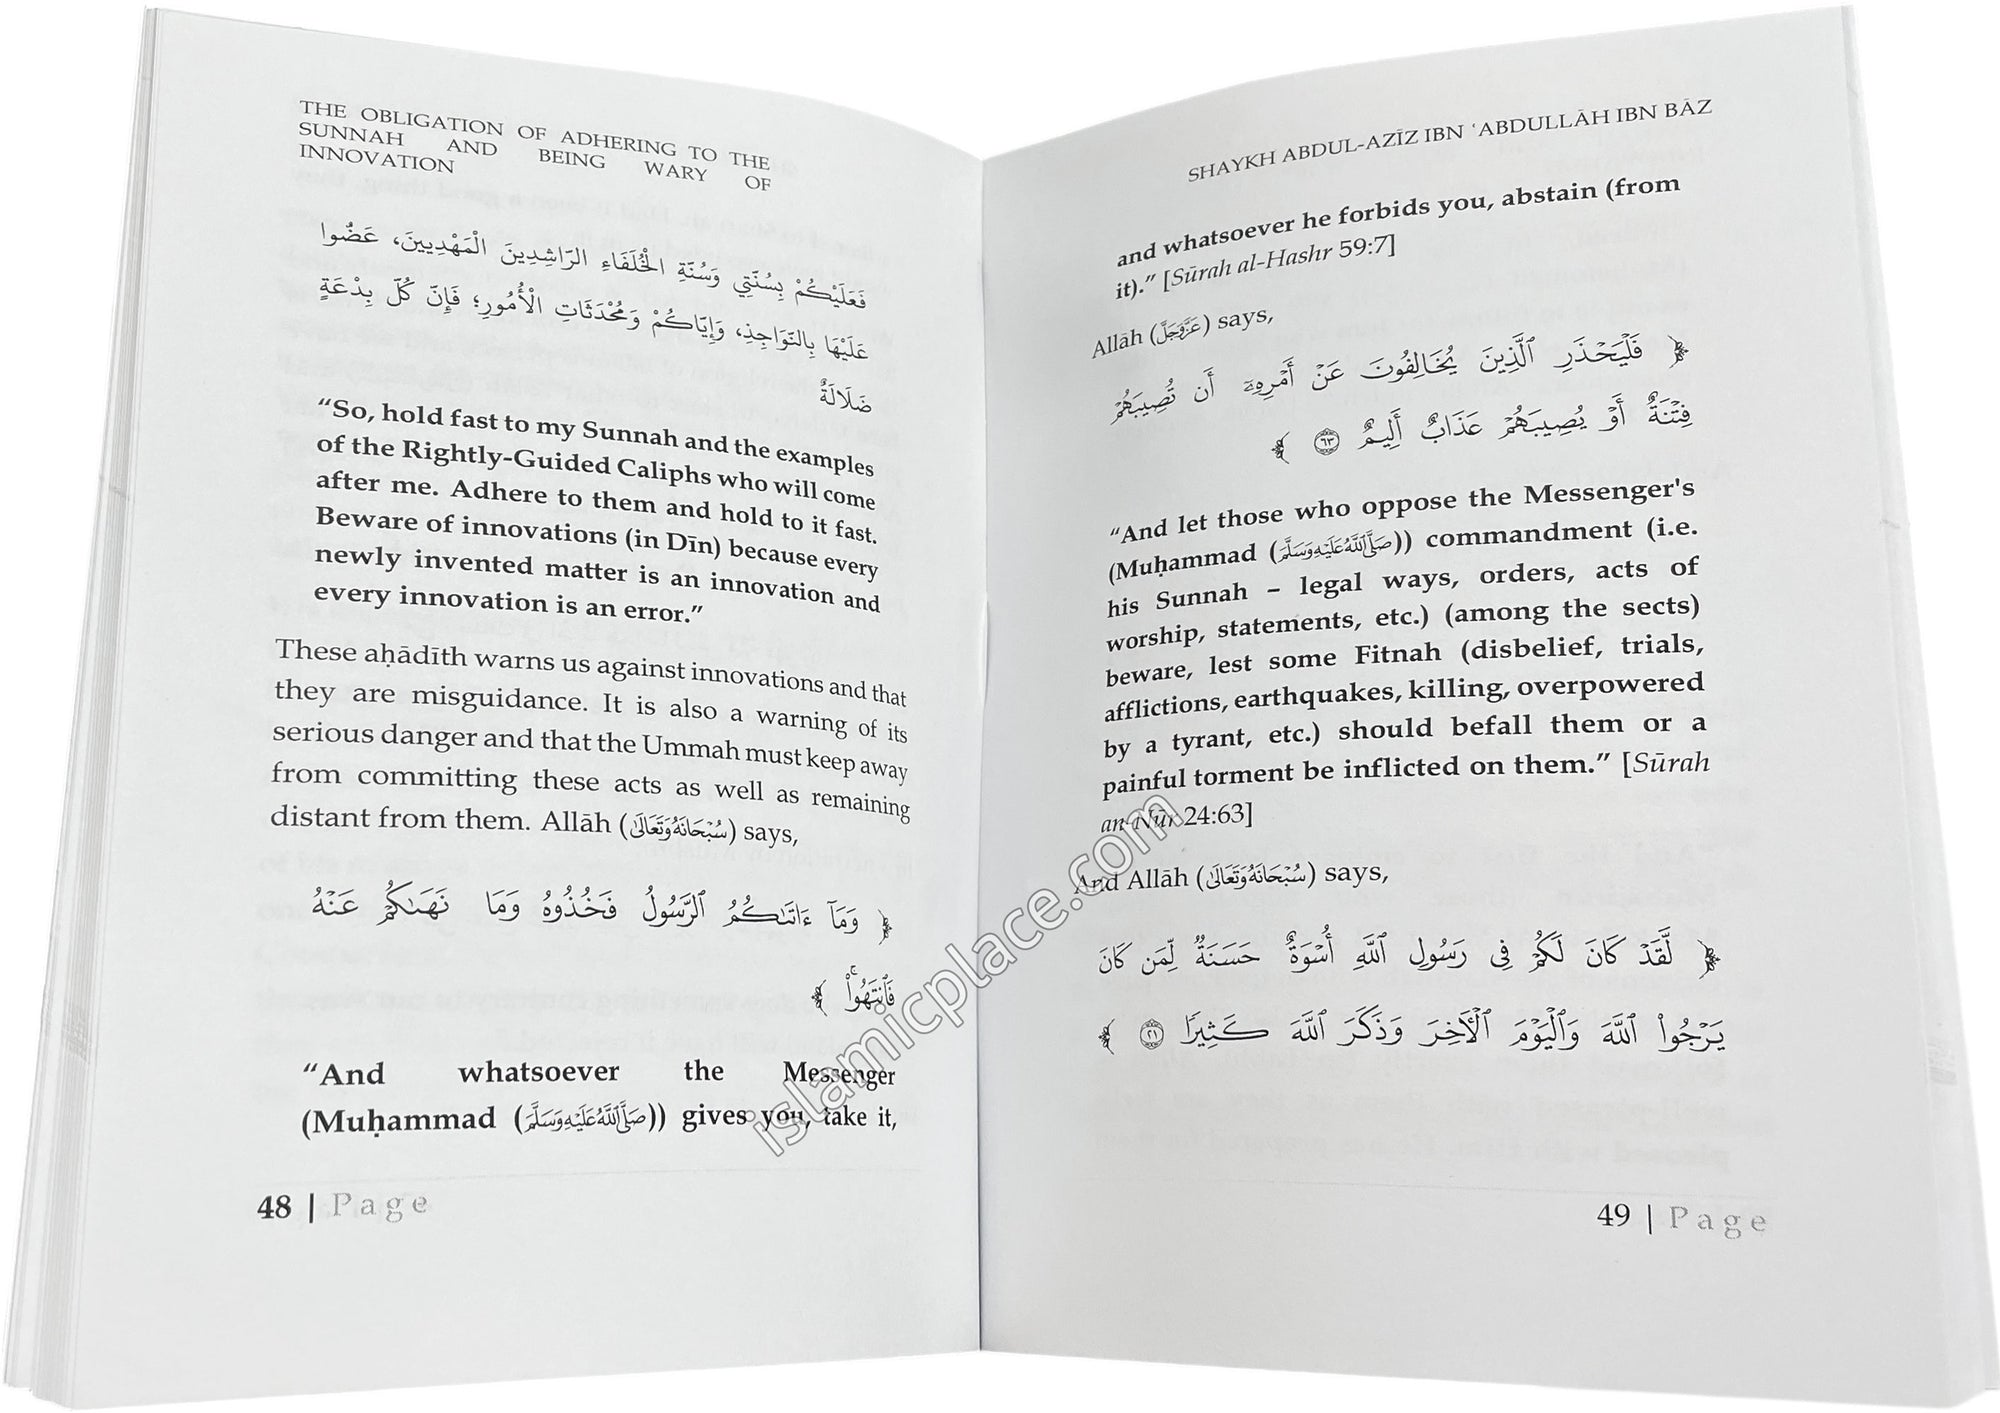 THE OBLIGATION OF ADHERING TO THE
SUNNAH AND BEING WARY OF
INNOVATION
فَعَلَيْكُمْ بِسُنَّتِي وَسُنَّةِ الْخُلَفَاءِ الرَّاشِدِينَ الْمَهْدِيينَ، عَضُّوا
عَلَيْهَا بِالنَّوَاجِذِ، وَإِيَّاكُمْ وَمُحْدَثَاتِ الْأُمُورِ؛ فَإِنَّ كُلَّ بِدْعَةٍ
ضَلَالَةٌ
“So, hold fast to my Sunnah and the examples
of the Rightly-Guided Caliphs who will come
after me. Adhere to them and hold to it fast.
Beware of innovations (in Dīn) because every
newly invented matter is an innovation and
every innovation is an error.”
These aḥādīth warns us against innovations and that
they are misguidance. It is also a warning of its
serious danger and that the Ummah must keep away
from committing these acts as well as remaining
distant from them. Allāh (سُبْحَانَهُ وَتَعَالَىٰ) says,
﴿ وَمَآ ءَاتَىٰكُمُ ٱلرَّسُولُ فَخُذُوهُ وَمَا نَهَىٰكُمْ عَنْهُ
فَٱنتَهُوا۟ ۚ ﴾
“And whatsoever the Messenger
(Muḥammad (صَلَّى ٱللَّهُ عَلَيْهِ وَسَلَّمَ)) gives you, take it,
48 | Page
SHAYKH ABDUL-AZĪZ IBN ʿABDULLĀH IBN BĀZ
and whatsoever he forbids you, abstain (from
it).” [Sūrah al-Hashr 59:7]
Allāh (عَزَّوَجَلَّ) says,
﴿ فَلْيَحْذَرِ ٱلَّذِينَ يُخَالِفُونَ عَنْ أَمْرِهِۦٓ أَن تُصِيبَهُمْ
فِتْنَةٌ أَوْ يُصِيبَهُمْ عَذَابٌ أَلِيمٌ ٦٣ ﴾
“And let those who oppose the Messenger's
(Muḥammad (صَلَّى ٱللَّهُ عَلَيْهِ وَسَلَّمَ)) commandment (i.e.
his Sunnah – legal ways, orders, acts of
worship, statements, etc.) (among the sects)
beware, lest some Fitnah (disbelief, trials,
afflictions, earthquakes, killing, overpowered
by a tyrant, etc.) should befall them or a
painful torment be inflicted on them.” [Sūrah
an-Nūr 24:63]
And Allāh (سُبْحَانَهُ وَتَعَالَىٰ) says,
﴿ لَّقَدْ كَانَ لَكُمْ فِى رَسُولِ ٱللَّهِ أُسْوَةٌ حَسَنَةٌ لِّمَن كَانَ
يَرْجُوا۟ ٱللَّهَ وَٱلْيَوْمَ ٱلْـَٔاخِرَ وَذَكَرَ ٱللَّهَ كَثِيرًا ٢١ ﴾
49 | Page
islamicplace.com